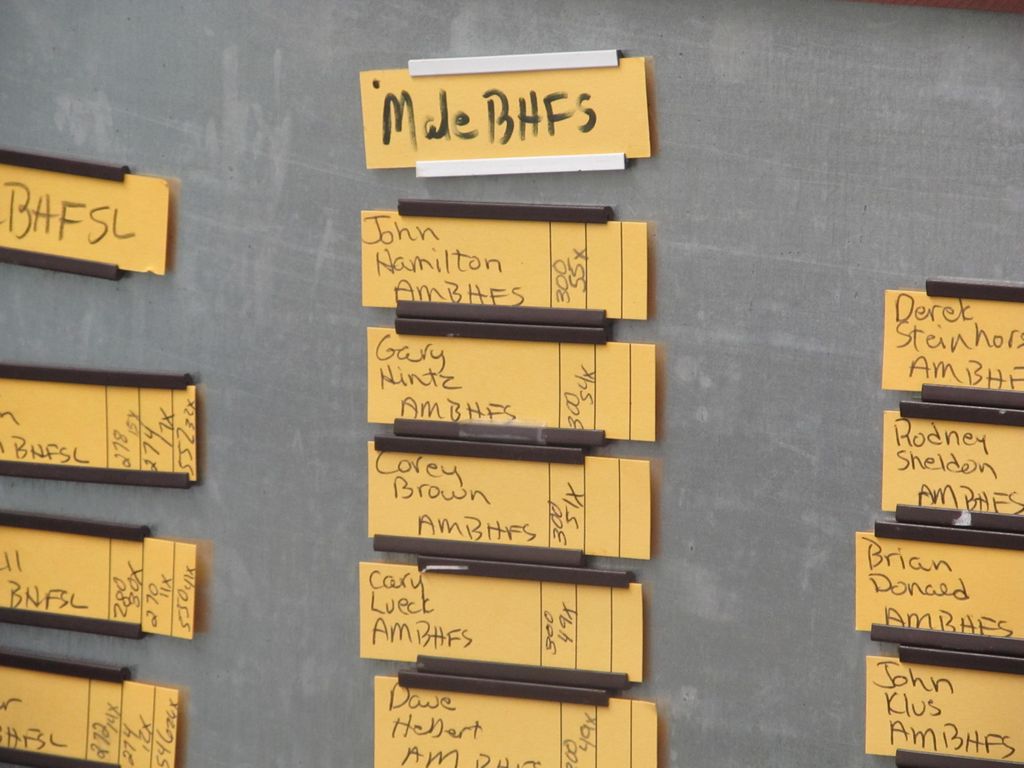 Male BHFS
BHFSL
John
Hamilton
AMBHFS
300
55X
Gary
Hintz
AMBHFS
300
54X
Corey
Brown
AMBHFS
300
51X
Cary
Lueck
AMBHFS
300
49X
Dave
Hebert
AM BHFS
300
49X
BHFSL
278
15X
274
17X
552 32X
ll
BHFSL
270
11X
550 41X
BHFSL
274
12X
546 26X
Derek
AMBHF
Rodney
Sheldon
AMBHFS
Brian
Donaed
AMBHFS
John
Klus
AMBHFS